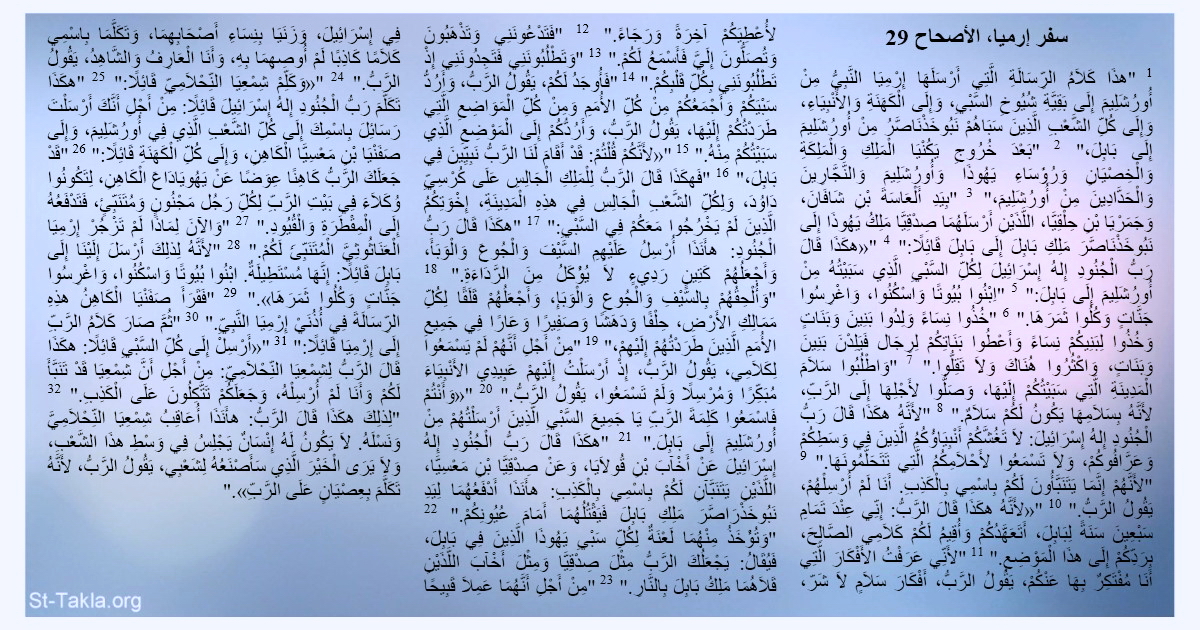 سفر إرميا، الأصحاح 29
1 "هذَا كَلاَمُ الرِّسَالَةِ الَّتِي أَرْسَلَهَا إِرْمِيَا النَّبِيُّ مِنْ
أُورُشَلِيمَ إِلَى بَقِيَّةِ شُيُوخِ السَّبْيِ، وَإِلَى الْكَهَنَةِ وَالأَنْبِيَاءِ،
وَإِلَى كُلِّ الشَّعْبِ الَّذِينَ سَبَاهُمْ نَبُوخَذْنَاصَّرُ مِنْ أُورُشَلِيمَ
إِلَى بَابِلَ،" 2 "بَعْدَ خُرُوجِ يَكُنْيَا الْمَلِكِ وَالْمَلِكَةِ
وَالْخِصْيَانِ وَرُؤَسَاءِ يَهُوذَا وَأُورُشَلِيمَ وَالنَّجَّارِينَ
وَالْحَدَّادِينَ مِنْ أُورُشَلِيمَ،" 3 "بِيَدِ أَلْعَاسَةَ بْنِ شَافَانَ،
وَجَمَرْيَا بْنِ حِلْقِيَّا، اللَّذَيْنِ أَرْسَلَهُمَا صِدْقِيَّا مَلِكُ يَهُوذَا إِلَى
نَبُوخَذْنَاصَّرَ مَلِكِ بَابِلَ إِلَى بَابِلَ قَائِلاً:" 4 "«هكَذَا قَالَ
رَبُّ الْجُنُودِ إِلهُ إِسْرَائِيلَ لِكُلِّ السَّبْيِ الَّذِي سَبَيْتُهُ مِنْ
أُورُشَلِيمَ إِلَى بَابِلَ:" 5 "اِبْنُوا بُيُوتًا وَاسْكُنُوا، وَاغْرِسُوا
جَنَّاتٍ وَكُلُوا ثَمَرَهَا." 6 "خُذُوا نِسَاءً وَلِدُوا بَنِينَ وَبَنَاتٍ
وَخُذُوا لِبَنِيكُمْ نِسَاءً وَأَعْطُوا بَنَاتِكُمْ لِرِجَال فَيَلِدْنَ بَنِينَ
وَبَنَاتٍ، وَاكْثُرُوا هُنَاكَ وَلاَ تَقِلُّوا." 7 "وَاطْلُبُوا سَلاَمَ
الْمَدِينَةِ الَّتِي سَبَيْتُكُمْ إِلَيْهَا، وَصَلُّوا لأَجْلِهَا إِلَى الرَّبِّ،
لأَنَّهُ بِسَلاَمِهَا يَكُونُ لَكُمْ سَلاَمٌ." 8 "لأَنَّهُ هكَذَا قَالَ رَبُّ
الْجُنُودِ إِلهُ إِسْرَائِيلَ: لاَ تَغُشَّكُمْ أَنْبِيَاؤُكُمُ الَّذِينَ فِي وَسَطِكُمْ
وَعَرَّافُوكُمْ، وَلاَ تَسْمَعُوا لأَحْلاَمِكُمُ الَّتِي تَتَحَلَّمُونَهَا." 9
"لأَنَّهُمْ إِنَّمَا يَتَنَبَّأُونَ لَكُمْ بِاسْمِي بِالْكَذِبِ. أَنَا لَمْ أُرْسِلْهُمْ،
يَقُولُ الرَّبُّ." 10 "«لأَنَّهُ هكَذَا قَالَ الرَّبُّ: إِنِّي عِنْدَ تَمَامِ
سَبْعِينَ سَنَةً لِبَابِلَ، أَتَعَهَّدُكُمْ وَأُقِيمُ لَكُمْ كَلاَمِي الصَّالِحَ،
بِرَدِّكُمْ إِلَى هذَا الْمَوْضِعِ." 11 "لأَنِّي عَرَفْتُ الأَفْكَارَ الَّتِي
أَنَا مُفْتَكِرٌ بِهَا عَنْكُمْ، يَقُولُ الرَّبُّ، أَفْكَارَ سَلاَمٍ لاَ شَرّ،
لأُعْطِيَكُمْ آخِرَةً وَرَجَاءً." 12 "فَتَدْعُونَنِي وَتَذْهَبُونَ
وَتُصَلُّونَ إِلَيَّ فَأَسْمَعُ لَكُمْ." 13 "وَتَطْلُبُونَنِي فَتَجِدُونَنِي إِذْ
تَطْلُبُونَنِي بِكُلِّ قَلْبِكُمْ." 14 "فَأُوجَدُ لَكُمْ، يَقُولُ الرَّبُّ، وَأَرُدُّ
سَبْيَكُمْ وَأَجْمَعُكُمْ مِنْ كُلِّ الأُمَمِ وَمِنْ كُلِّ الْمَوَاضِعِ الَّتِي
طَرَدْتُكُمْ إِلَيْهَا، يَقُولُ الرَّبُّ، وَأَرُدُّكُمْ إِلَى الْمَوْضِعِ الَّذِي
سَبَيْتُكُمْ مِنْهُ." 15 "«لأَنَّكُمْ قُلْتُمْ: قَدْ أَقَامَ لَنَا الرَّبُّ نَبِيِّينَ فِي
بَابِلَ،" 16 "فَهكَذَا قَالَ الرَّبُّ لِلْمَلِكِ الْجَالِسِ عَلَى كُرْسِيِّ
دَاوُدَ، وَلِكُلِّ الشَّعْبِ الْجَالِسِ فِي هذِهِ الْمَدِينَةِ، إِخْوَتِكُمُ
الَّذِينَ لَمْ يَخْرُجُوا مَعَكُمْ فِي السَّبْيِ:" 17 "هكَذَا قَالَ رَبُّ
الْجُنُودِ: هأَنَذَا أُرْسِلُ عَلَيْهِمِ السَّيْفَ وَالْجُوعَ وَالْوَبَأَ،
وَأَجْعَلُهُمْ كَتِينٍ رَدِيءٍ لاَ يُؤْكَلُ مِنَ الرَّدَاءَةِ." 18
"وَأُلْحِقُهُمْ بِالسَّيْفِ وَالْجُوعِ وَالْوَبَإِ، وَأَجْعَلُهُمْ قَلَقًا لِكُلِّ
مَمَالِكِ الأَرْضِ، حِلْفًا وَدَهَشًا وَصَفِيرًا وَعَارًا فِي جَمِيعِ
الأُمَمِ الَّذِينَ طَرَدْتُهُمْ إِلَيْهِمْ،" 19 "مِنْ أَجْلِ أَنَّهُمْ لَمْ يَسْمَعُوا
لِكَلاَمِي، يَقُولُ الرَّبُّ، إِذْ أَرْسَلْتُ إِلَيْهِمْ عَبِيدِي الأَنْبِيَاءَ
مُبَكِّرًا وَمُرْسِلاً وَلَمْ تَسْمَعُوا، يَقُولُ الرَّبُّ." 20 "«وَأَنْتُمْ
فَاسْمَعُوا كَلِمَةَ الرَّبِّ يَا جَمِيعَ السَّبْيِ الَّذِينَ أَرْسَلْتُهُمْ مِنْ
أُورُشَلِيمَ إِلَى بَابِلَ." 21 "هكَذَا قَالَ رَبُّ الْجُنُودِ إِلهُ
إِسْرَائِيلَ عَنْ أَخْآبَ بْنِ قُولاَيَا، وَعَنْ صِدْقِيَّا بْنِ مَعَسِيَّا،
اللَّذَيْنِ يَتَنَبَّآنِ لَكُمْ بِاسْمِي بِالْكَذِبِ: هأَنَذَا أَدْفَعُهُمَا لِيَدِ
نَبُوخَذْرَاصَّرَ مَلِكِ بَابِلَ فَيَقْتُلُهُمَا أَمَامَ عُيُونِكُمْ." 22
"وَتُؤْخَذُ مِنْهُمَا لَعْنَةٌ لِكُلِّ سَبْيِ يَهُوذَا الَّذِينَ فِي بَابِلَ،
فَيُقَالُ: يَجْعَلُكَ الرَّبُّ مِثْلَ صِدْقِيَّا وَمِثْلَ أَخْآبَ اللَّذَيْنِ
قَلاَهُمَا مَلِكُ بَابِلَ بِالنَّارِ." 23 "مِنْ أَجْلِ أَنَّهُمَا عَمِلاَ قَبِيحًا
فِي إِسْرَائِيلَ، وَزَنَيَا بِنِسَاءِ أَصْحَابِهِمَا، وَتَكَلَّمَا بِاسْمِي
كَلاَمًا كَاذِبًا لَمْ أُوصِهِمَا بِهِ، وَأَنَا الْعَارِفُ وَالشَّاهِدُ، يَقُولُ
الرَّبُّ." 24 "«وَكَلِّمْ شِمْعِيَا النِّحْلاَمِيَّ قَائِلاً:" 25 "هكَذَا
تَكَلَّمَ رَبُّ الْجُنُودِ إِلهُ إِسْرَائِيلَ قَائِلاً: مِنْ أَجْلِ أَنَّكَ أَرْسَلْتَ
رَسَائِلَ بِاسْمِكَ إِلَى كُلِّ الشَّعْبِ الَّذِي فِي أُورُشَلِيمَ، وَإِلَى
صَفَنْيَا بْنِ مَعَسِيَّا الْكَاهِنِ، وَإِلَى كُلِّ الْكَهَنَةِ قَائِلاً:" 26 "قَدْ
جَعَلَكَ الرَّبُّ كَاهِنًا عِوَضًا عَنْ يَهُويَادَاعَ الْكَاهِنِ، لِتَكُونُوا
وُكَلاَءَ فِي بَيْتِ الرَّبِّ لِكُلِّ رَجُل مَجْنُونٍ وَمُتَنَبِّئٍ، فَتَدْفَعُهُ
إِلَى الْمِقْطَرَةِ وَالْقُيُودِ." 27 "وَالآنَ لِمَاذَا لَمْ تَزْجُرْ إِرْمِيَا
الْعَنَاثُوثِيَّ الْمُتَنَبِّئَ لَكُمْ." 28 "لأَنَّهُ لِذلِكَ أَرْسَلَ إِلَيْنَا إِلَى
بَابِلَ قَائِلاً: إِنَّهَا مُسْتَطِيلَةٌ. ابْنُوا بُيُوتًا وَاسْكُنُوا، وَاغْرِسُوا
جَنَّاتٍ وَكُلُوا ثَمَرَهَا»." 29 "فَقَرَأَ صَفَنْيَا الْكَاهِنُ هذِهِ
الرِّسَالَةَ فِي أُذُنَيْ إِرْمِيَا النَّبِيِّ." 30 "ثُمَّ صَارَ كَلاَمُ الرَّبِّ
إِلَى إِرْمِيَا قَائِلاً:" 31 "«أَرْسِلْ إِلَى كُلِّ السَّبْيِ قَائِلاً: هكَذَا
قَالَ الرَّبُّ لِشِمْعِيَا النِّحْلاَمِيِّ: مِنْ أَجْلِ أَنَّ شِمْعِيَا قَدْ تَنَبَّأَ
لَكُمْ وَأَنَا لَمْ أُرْسِلْهُ، وَجَعَلَكُمْ تَتَّكِلُونَ عَلَى الْكَذِبِ." 32
"لِذلِكَ هكَذَا قَالَ الرَّبُّ: هأَنَذَا أُعَاقِبُ شِمْعِيَا النِّحْلاَمِيَّ
وَنَسْلَهُ. لاَ يَكُونُ لَهُ إِنْسَانٌ يَجْلِسُ فِي وَسْطِ هذَا الشَّعْبِ،
وَلاَ يَرَى الْخَيْرَ الَّذِي سَأَصْنَعُهُ لِشَعْبِي، يَقُولُ الرَّبُّ، لأَنَّهُ
تَكَلَّمَ بِعِصْيَانٍ عَلَى الرَّبِّ»."
St-Takla.org